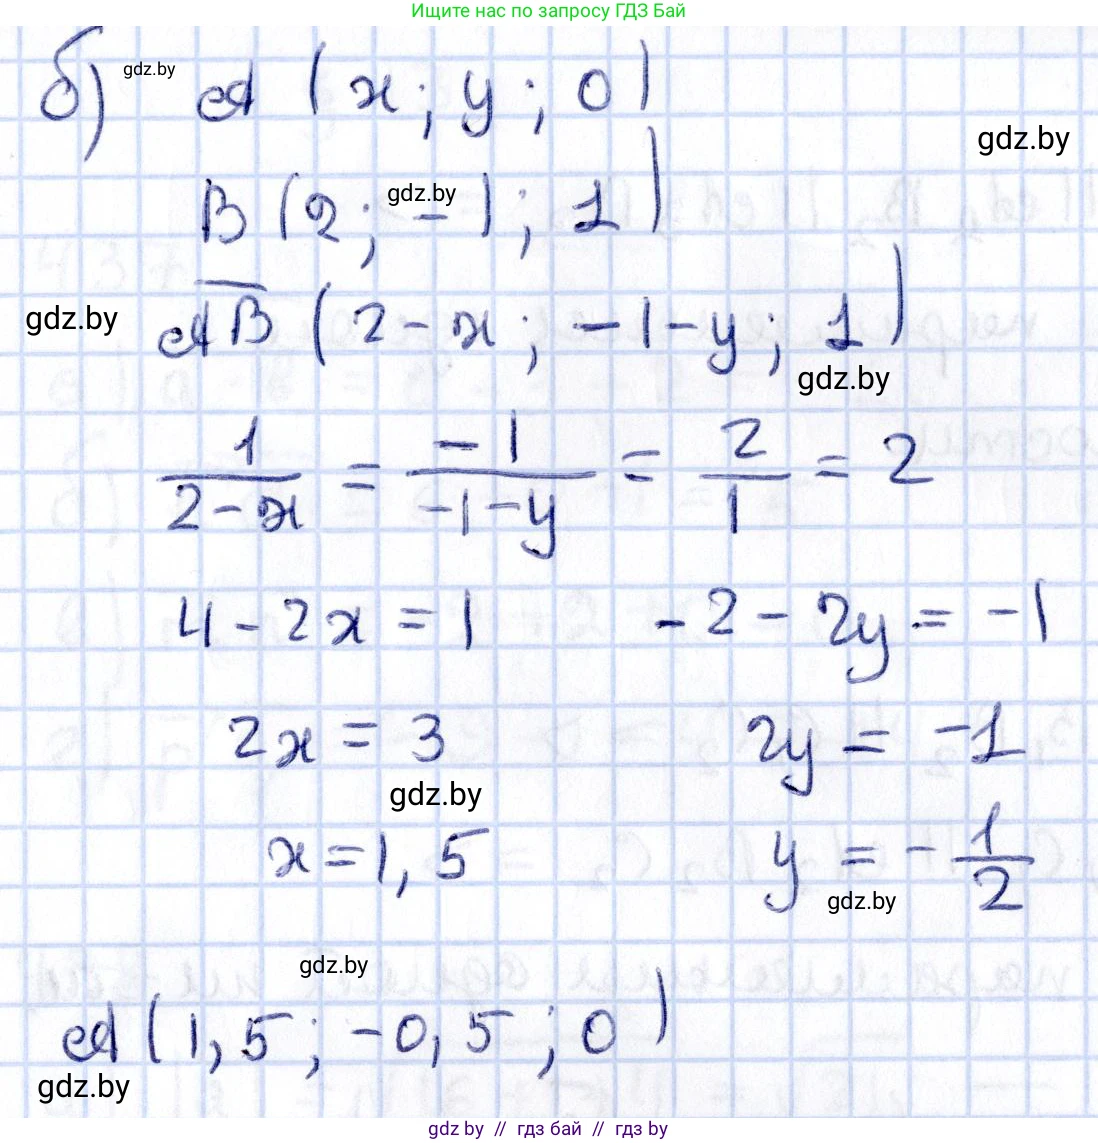 Ищите нас по запросу ГДЗ Бай
б) gdz.by A (x; y; 0)
gdz.by
B (2; -1; 1)
gdz.by
AB (2-x; -1-y; 1)
gdz.by
gdz.by
1/(2-x) = -1/(-1-y) = 2/1 = 2
4-2x=1 -2-2y=-1
2x=3 2y=-1
gdz.by
x=1,5 y=-1/2
gdz.by
gdz.by
A (1,5; -0,5; 0)
gdz.by
gdz by // гдз бай // гдз by